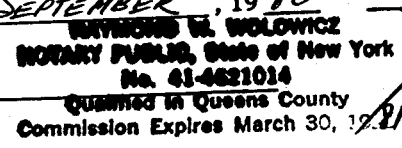 SEPTEMBER, 19 80
RAYMOND W. WOLOWICZ
NOTARY PUBLIC, State of New York
No. 41-4621014
Qualified in Queens County
Commission Expires March 30, 1981